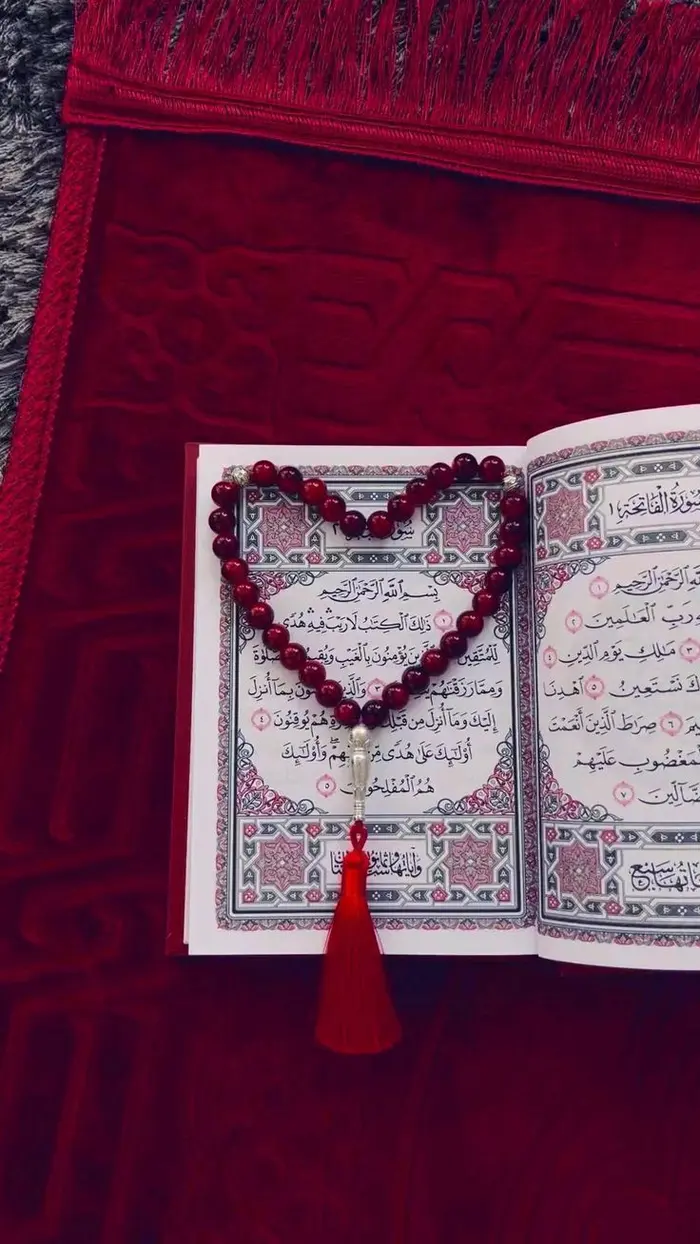 سُورَةُ الْفَاتِحَةِ ١
الرَّحْمَٰنِ الرَّحِيمِ ١
رَبِّ الْعَٰلَمِينَ ٢
٣ مَٰلِكِ يَوْمِ الدِّينِ ٤
نَسْتَعِينُ ٥ اهْدِنَا
٦ صِرَٰطَ الَّذِينَ أَنْعَمْتَ
عَلَيْهِمْ
٧
سَبْعٌ
سُورَةُ
بِسْمِ اللَّهِ الرَّحْمَٰنِ الرَّحِيمِ
١ ذَٰلِكَ الْكِتَٰبُ لَا رَيْبَ فِيهِ هُدًى
لِّلْمُتَّقِينَ يُؤْمِنُونَ بِالْغَيْبِ
وَمِمَّا رَزَقْنَٰهُمْ ٣ وَالَّذِينَ بِمَا أُنزِلَ
إِلَيْكَ وَمَا أُنزِلَ مِن قَبْلِكَ هُمْ يُوقِنُونَ ٤
أُولَٰئِكَ عَلَىٰ هُدًى وَأُولَٰئِكَ
هُمُ الْمُفْلِحُونَ ٥